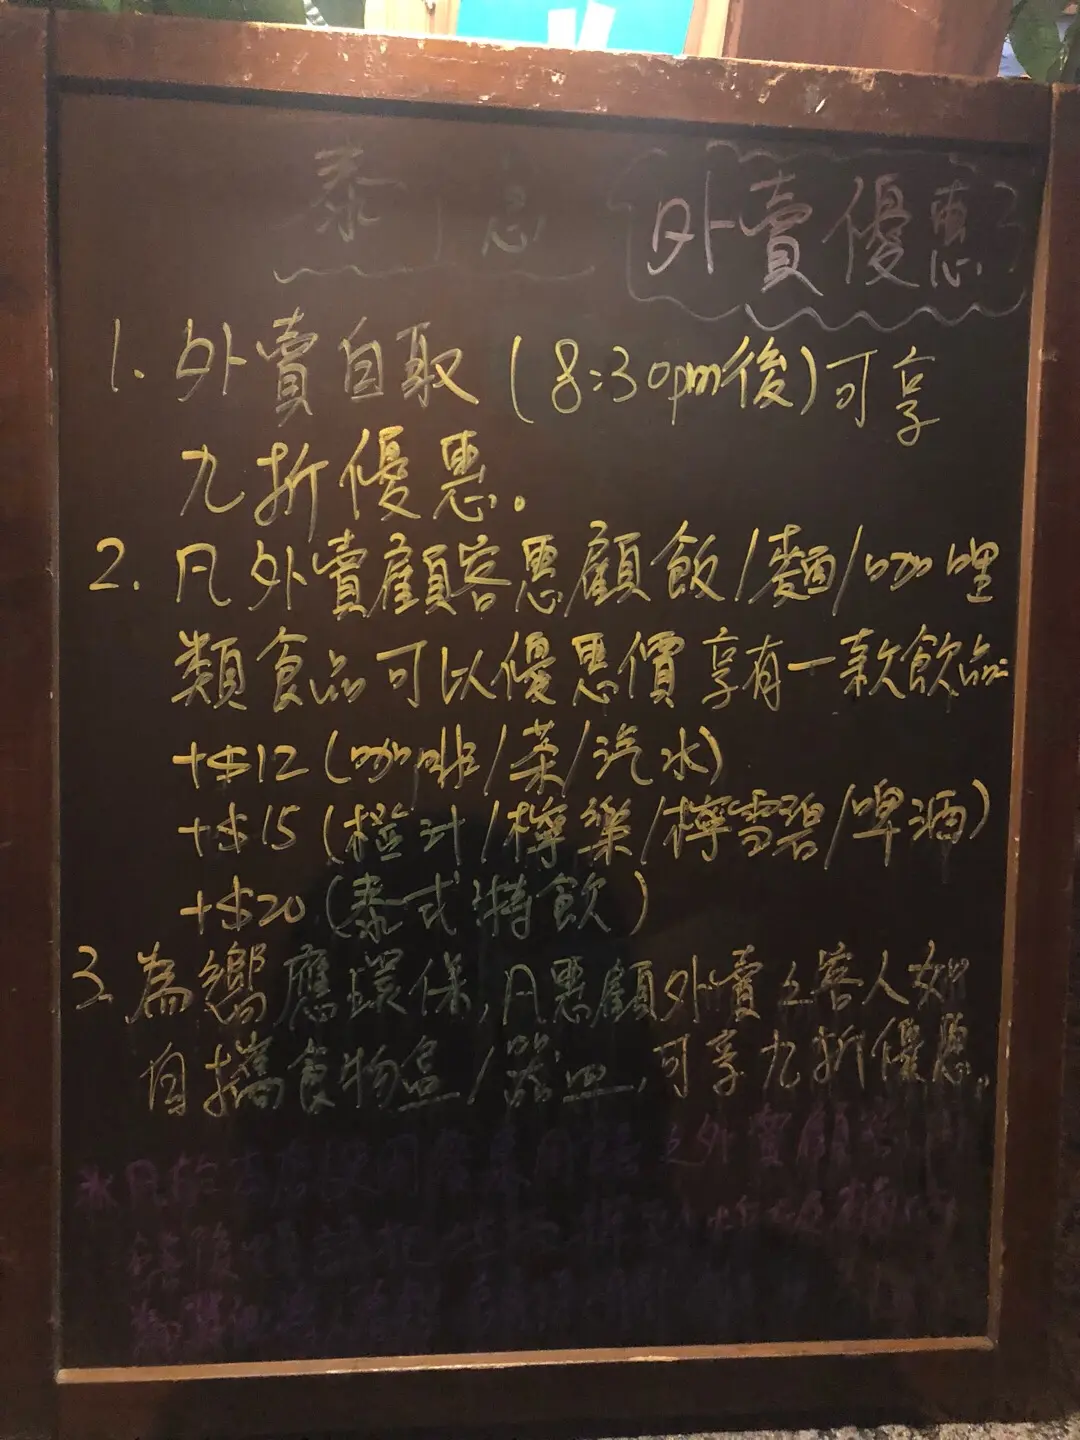 泰 外賣優惠
1. 外賣自取 (8:30pm後)可享
九折優惠。
2. 凡外賣顧客惠顧飯/麵/咖喱
類食品可以優惠價享有一款飲品
+$12 (咖啡/茶/汽水)
+$15 (橙汁/檸樂/檸雪碧/啤酒)
+$20 (泰式特飲)
3. 為嚮應環保,凡惠顧外賣之客人如
自攜食物盒/器皿,可享九折優惠。
外賣顧客